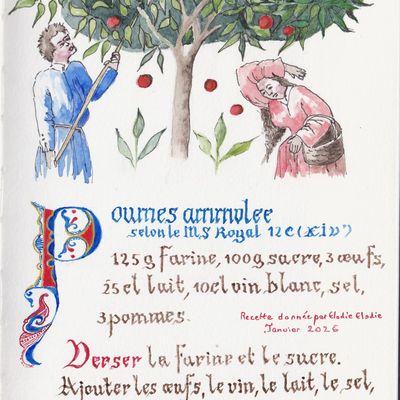 Poumes ammolee
selon le MS Royal 12 c (xiv°)
125 g farine, 100g sucre, 3 œufs,
25 cl lait, 10cl vin blanc, sel,
3 pommes.
Recette donnée par Elodie Elodie
Janvier 2026
Verser la farine et le sucre.
Ajouter les œufs, le vin, le lait, le sel,